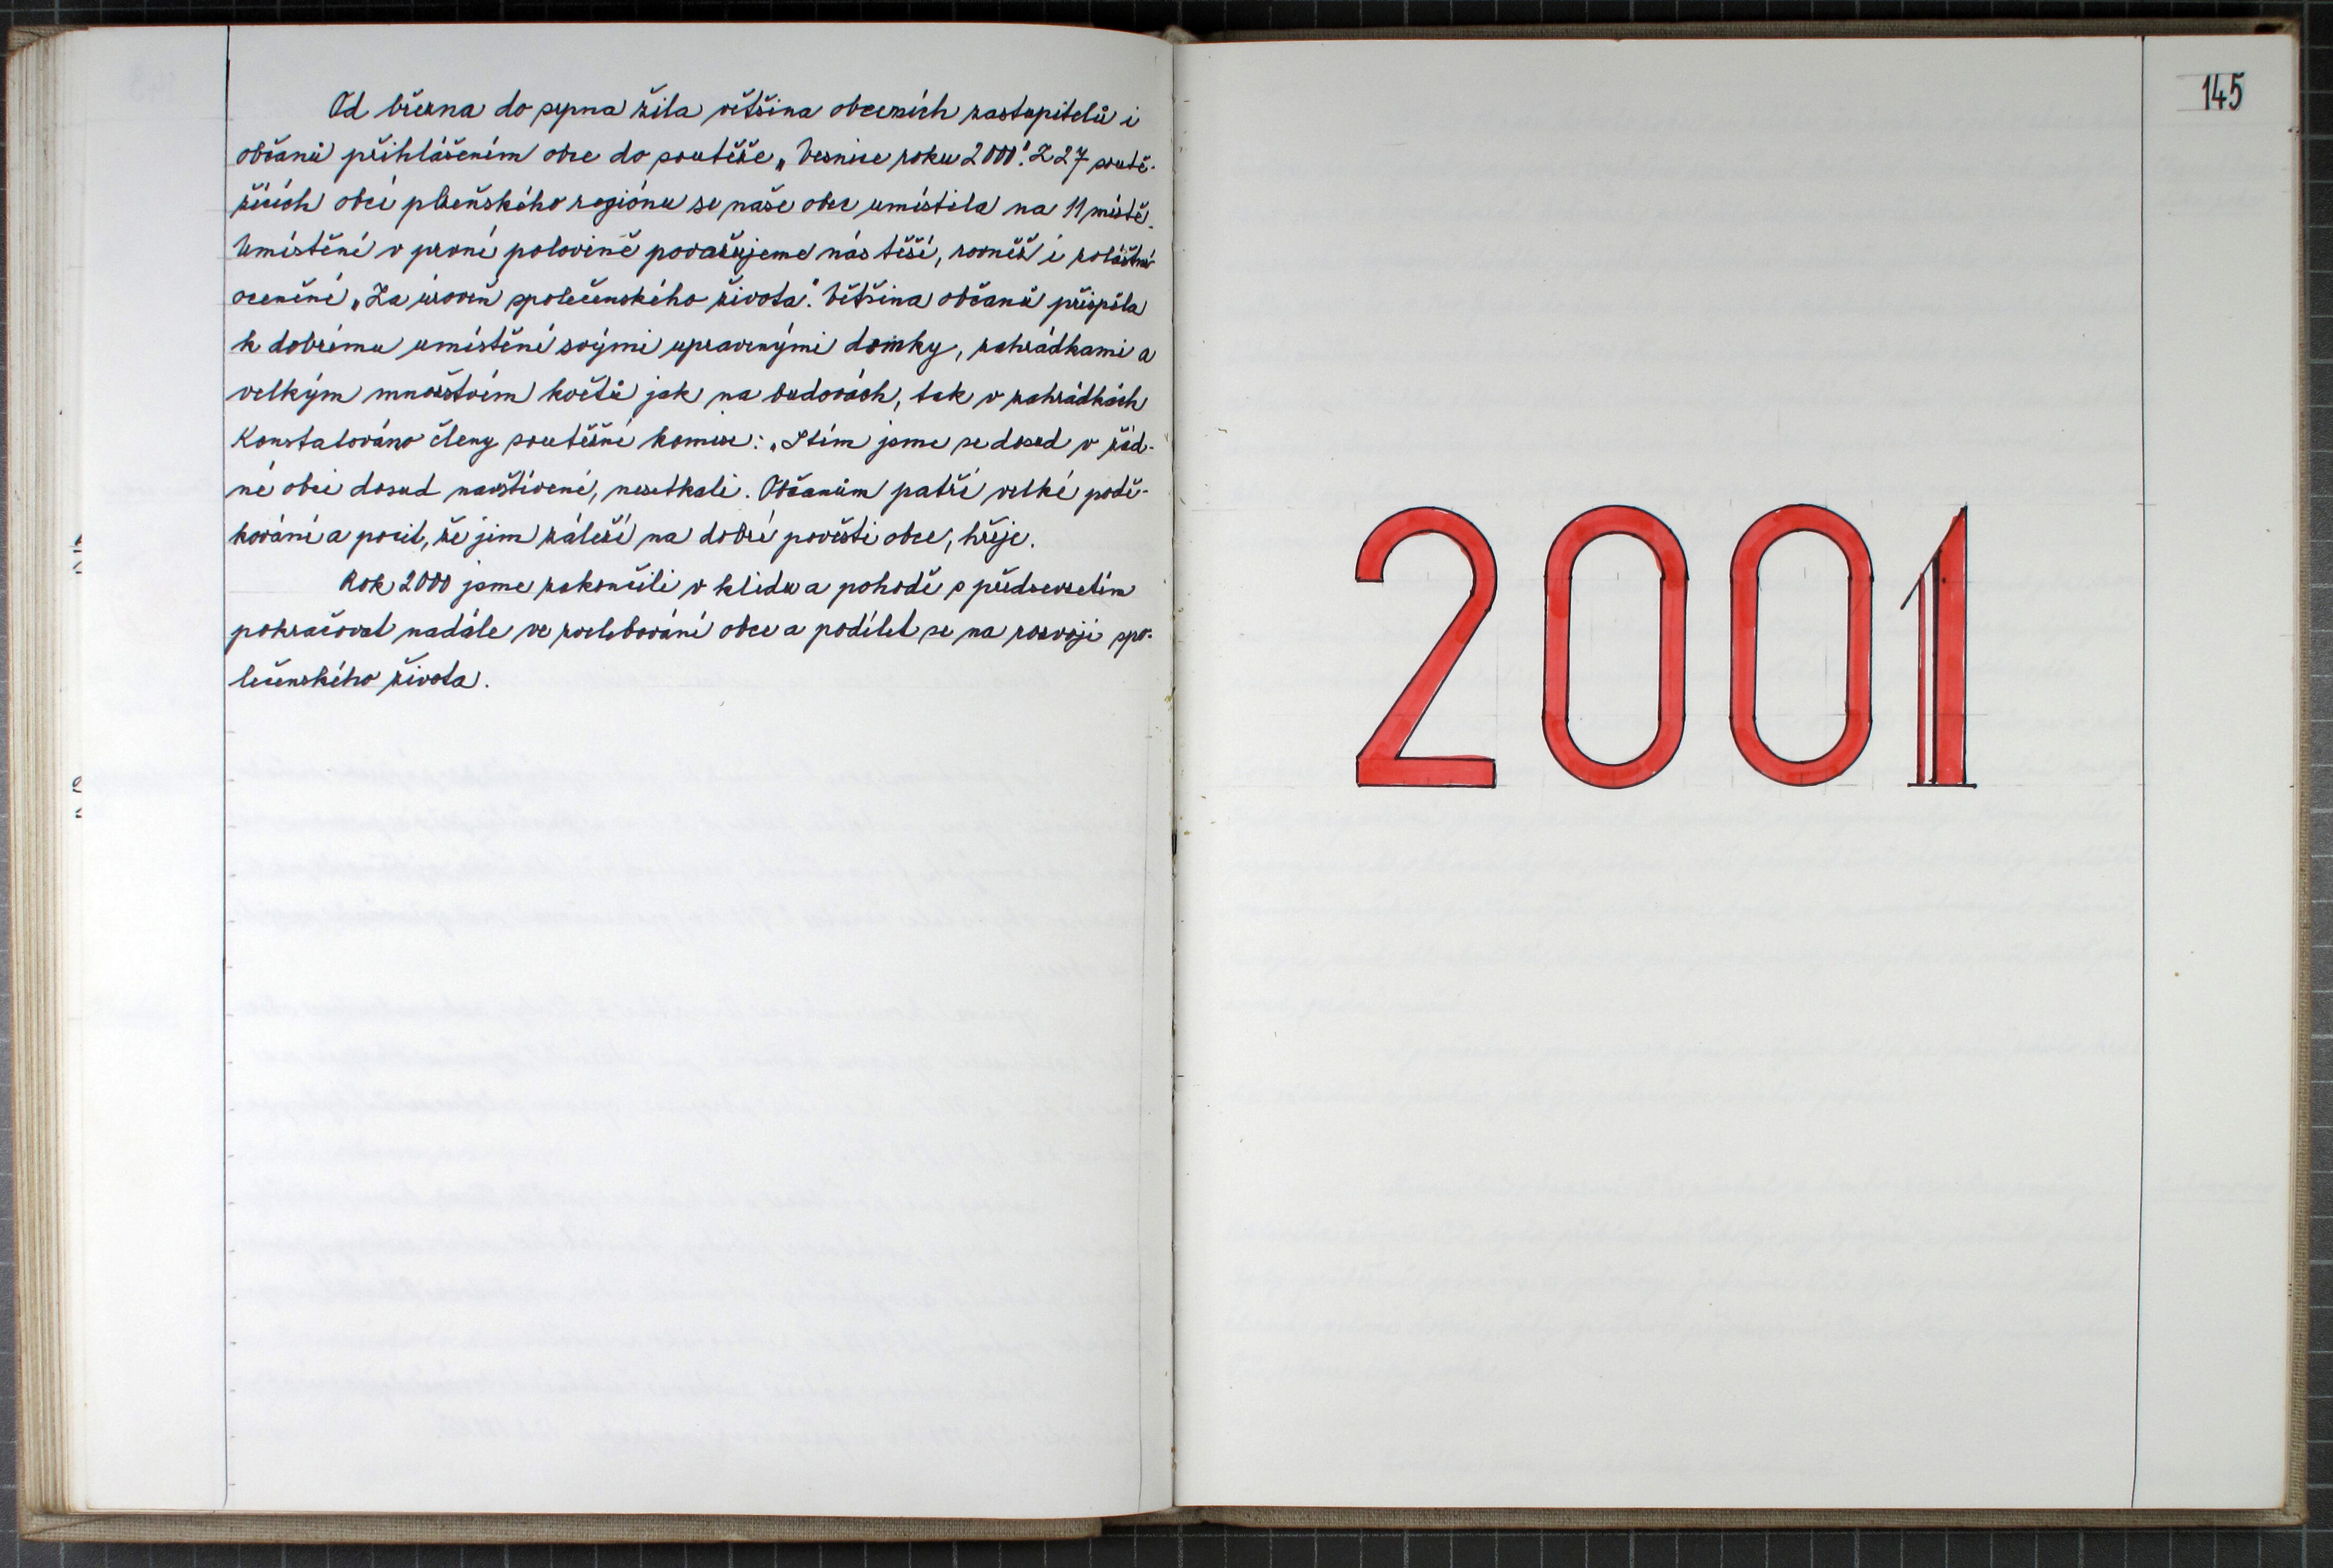 Od března do srpna žila většina obecních zastupitelů i
občanů přihlášením obce do soutěže „Vesnice roku 2000". Z 27 soutě-
žících obcí plzeňského regiónu se naše obec umístila na 11 místě.
Umístění v první polovině považujeme nás těší, rovněž i zvláštní
ocenění „Za úroveň společenského života". Většina občanů přispěla
k dobrému umístění svými upravenými domky, zahrádkami a
velkým množstvím květů jak na budovách, tak v zahrádkách
Konstatováno členy soutěžní komise: „S tím jsme se dosud v žád-
né obci dosud navštívené, nesetkali. Občanům patří velké podě-
kování a pocit, že jim záleží na dobré pověsti obce, hřeje.
Rok 2000 jsme zakončili v klidu a pohodě s předsevzetím
pokračovat nadále ve zvelebování obce a podílet se na rozvoji spo-
lečenského života.
145
2001